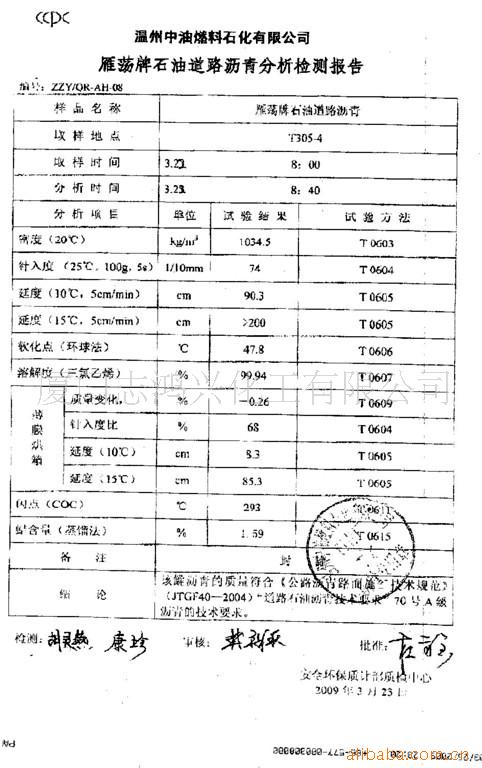 CCPC
温州中油燃料石化有限公司
雁荡牌石油道路沥青分析检测报告
编号: ZZY/QR-AH-08
样品名称 雁荡牌石油道路沥青
取样地点 T305-4
取样时间 3.23 8:00
分析时间 3.23 8:40
分析项目 单位 试验结果 试验方法
密度(20℃) kg/m³ 1034.5 T 0603
针入度(25℃, 100g, 5s) 1/10mm 74 T 0604
延度(10℃, 5cm/min) cm 90.3 T 0605
延度(15℃, 5cm/min) cm >200 T 0605
软化点(环球法) ℃ 47.8 T 0606
溶解度(三氯乙烯) % 99.94 T 0607
厦门志鸿兴化工有限公司
薄膜烘箱
质量变化, % -0.26 T 0609
针入度比 % 68 T 0604
延度(10℃) cm 8.3 T 0605
延度(15℃) cm 85.3 T 0605
闪点(COC) ℃ 293 T 0611
蜡含量(蒸馏法) % 1.59 T 0615
备注
结论 该罐沥青的质量符合《公路沥青路面施工技术规范》
(JTGF40-2004)"道路石油沥青技术要求" 70号A级
沥青的技术要求。
检测: 康珍 审核: 批准:
安全环保质计部质检中心
2009年3月23日
alibaba.com.cn